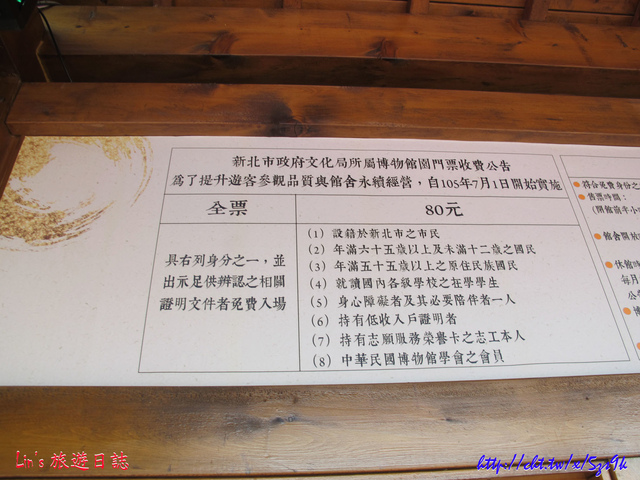 新北市政府文化局所屬博物館園門票收費公告
為了提升遊客參觀品質與館舍永續經營，自105年7月1日開始實施
全票
80元
具右列身分之一，並
出示足供辨認之相關
證明文件者免費入場
(1) 設籍於新北市之市民
(2) 年滿六十五歲以上及未滿十二歲之國民
(3) 年滿五十五歲以上之原住民族國民
(4) 就讀國內各級學校之在學學生
(5) 身心障礙者及其必要陪伴者一人
(6) 持有低收入戶證明者
(7) 持有志願服務榮譽卡之志工本人
(8) 中華民國博物館學會之會員
符合免費身分之
售票時間：
(閉館前半小
館舍開放
休館時
每月
公告
博
Lin's 旅遊日誌